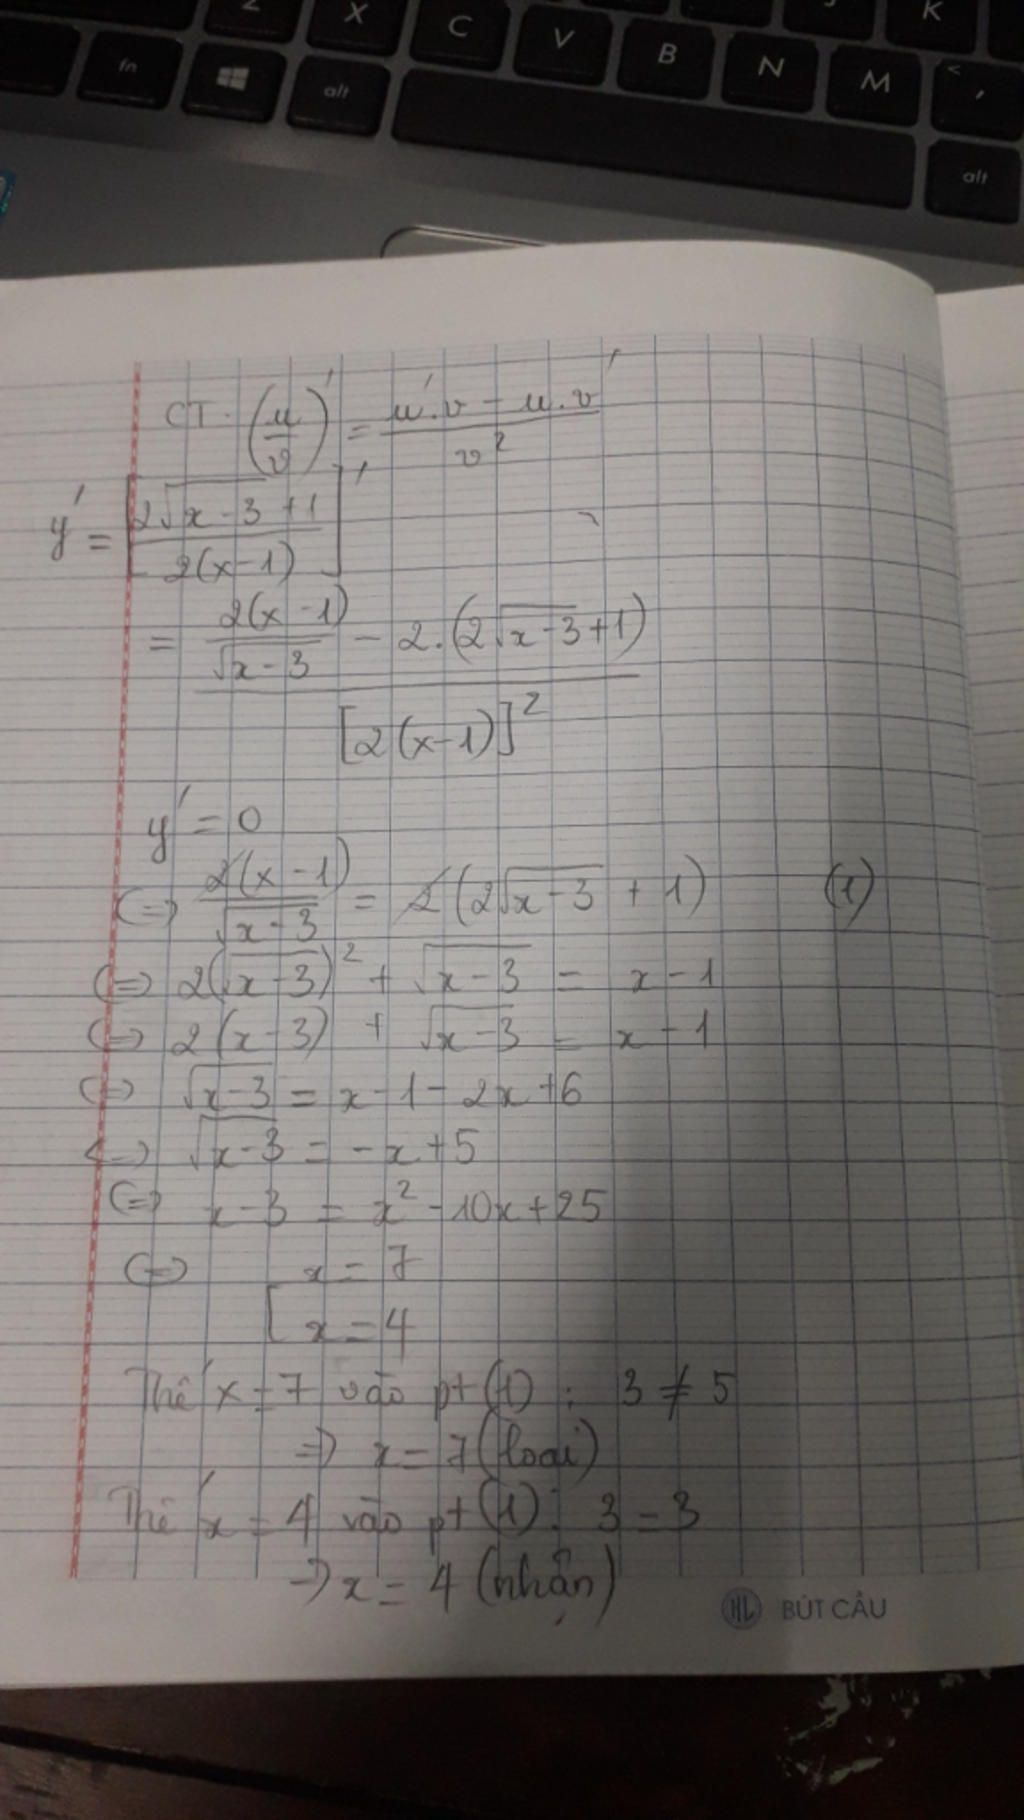 Z X C V B N M K
fn alt < , alt
CT: (u/v)' = (u'.v - u.v')/v²
y' = [(2√(x-3) + 1)/(2(x-1))]'
= (2(x-1)/√(x-3) - 2.(2√(x-3)+1))/[2(x-1)]²
y' = 0
(=) 2(x-1)/√(x-3) = 2(2√(x-3) + 1) (1)
(=) 2(√(x-3))² + √(x-3) = x-1
(=) 2(x-3) + √(x-3) = x-1
(=) √(x-3) = x-1-2x+6
(=) √(x-3) = -x+5
(=) x-3 = x²-10x+25
(=) [x = 7
x = 4
Thế x=7 vào pt(1): 3 ≠ 5
=) x = 7 (loại)
Thế x = 4 vào pt(1): 3 = 3
=) x = 4 (nhận)
HL BÚT CÂU